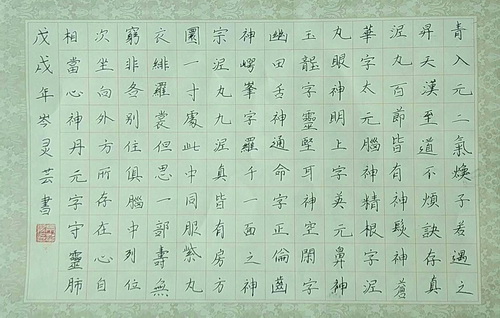 青入元二氣煥子若遇之
昇天漢至道不煩訣存真
泥丸百節皆有神髮神蒼
華字太元腦神精根字泥
丸眼神明上字英元鼻神
玉壟字靈堅耳神空閑字
幽田舌神通命字正倫齒
神崿峯字羅千一面之神
宗泥丸九泥真皆有房方
圓一寸處此中同服紫丸
衣緋羅裳但思一部壽無
窮非各別住俱腦中列位
次坐向外方所存在心自
相當心神丹元字守靈肺
戊戌年岑灵芸書